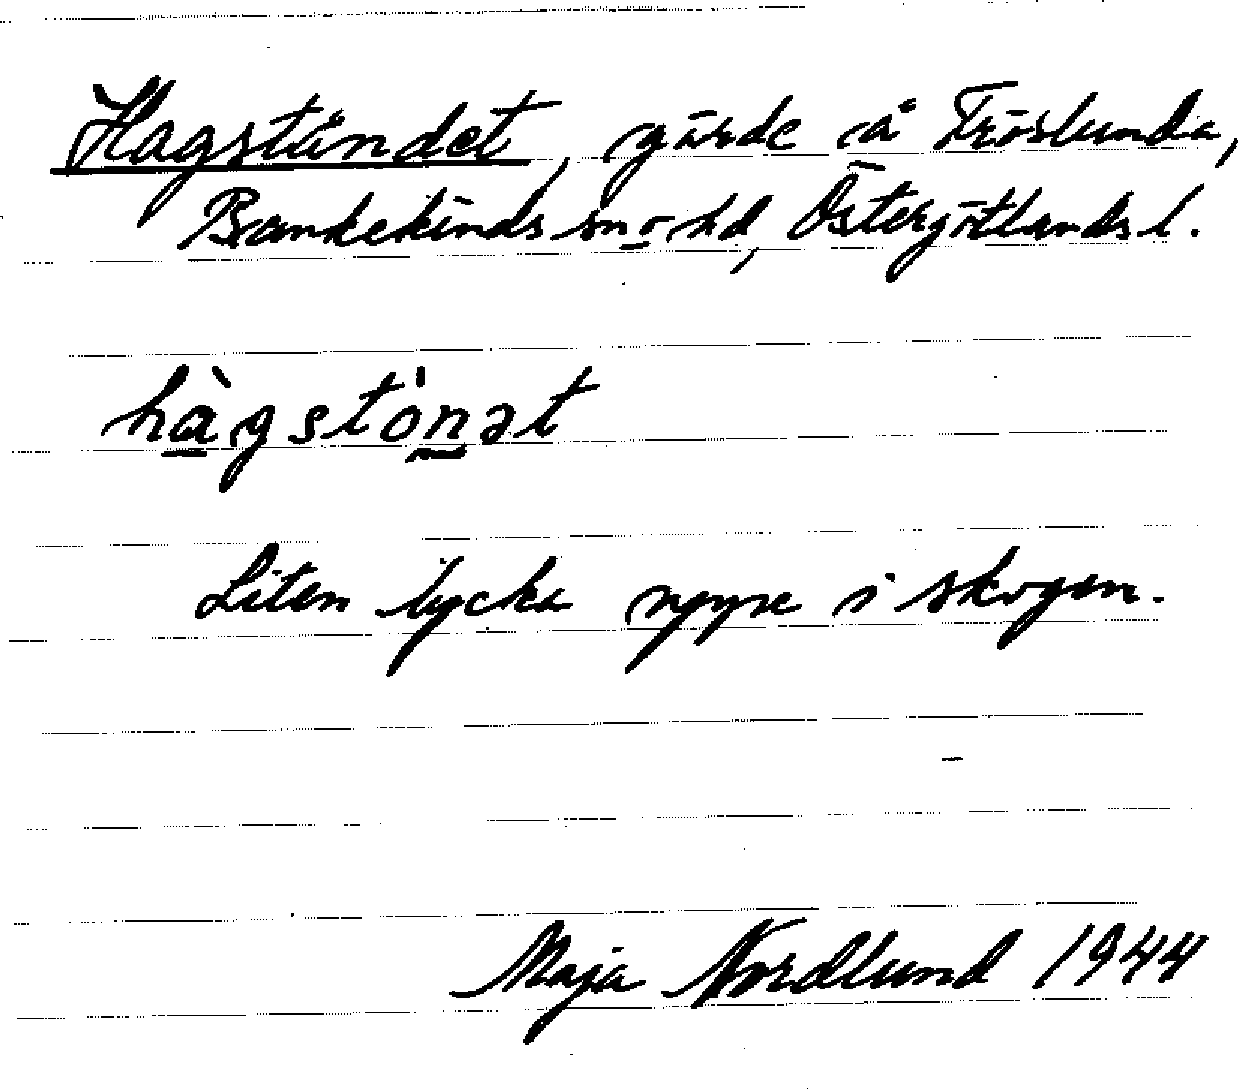 Hagståndet, gärde å Fröslunda,
Bankekinds sn o. hd, Östergötlands l.
hàgstònət
Liten lycka uppe i skogen.
Maja Nordlund 1944